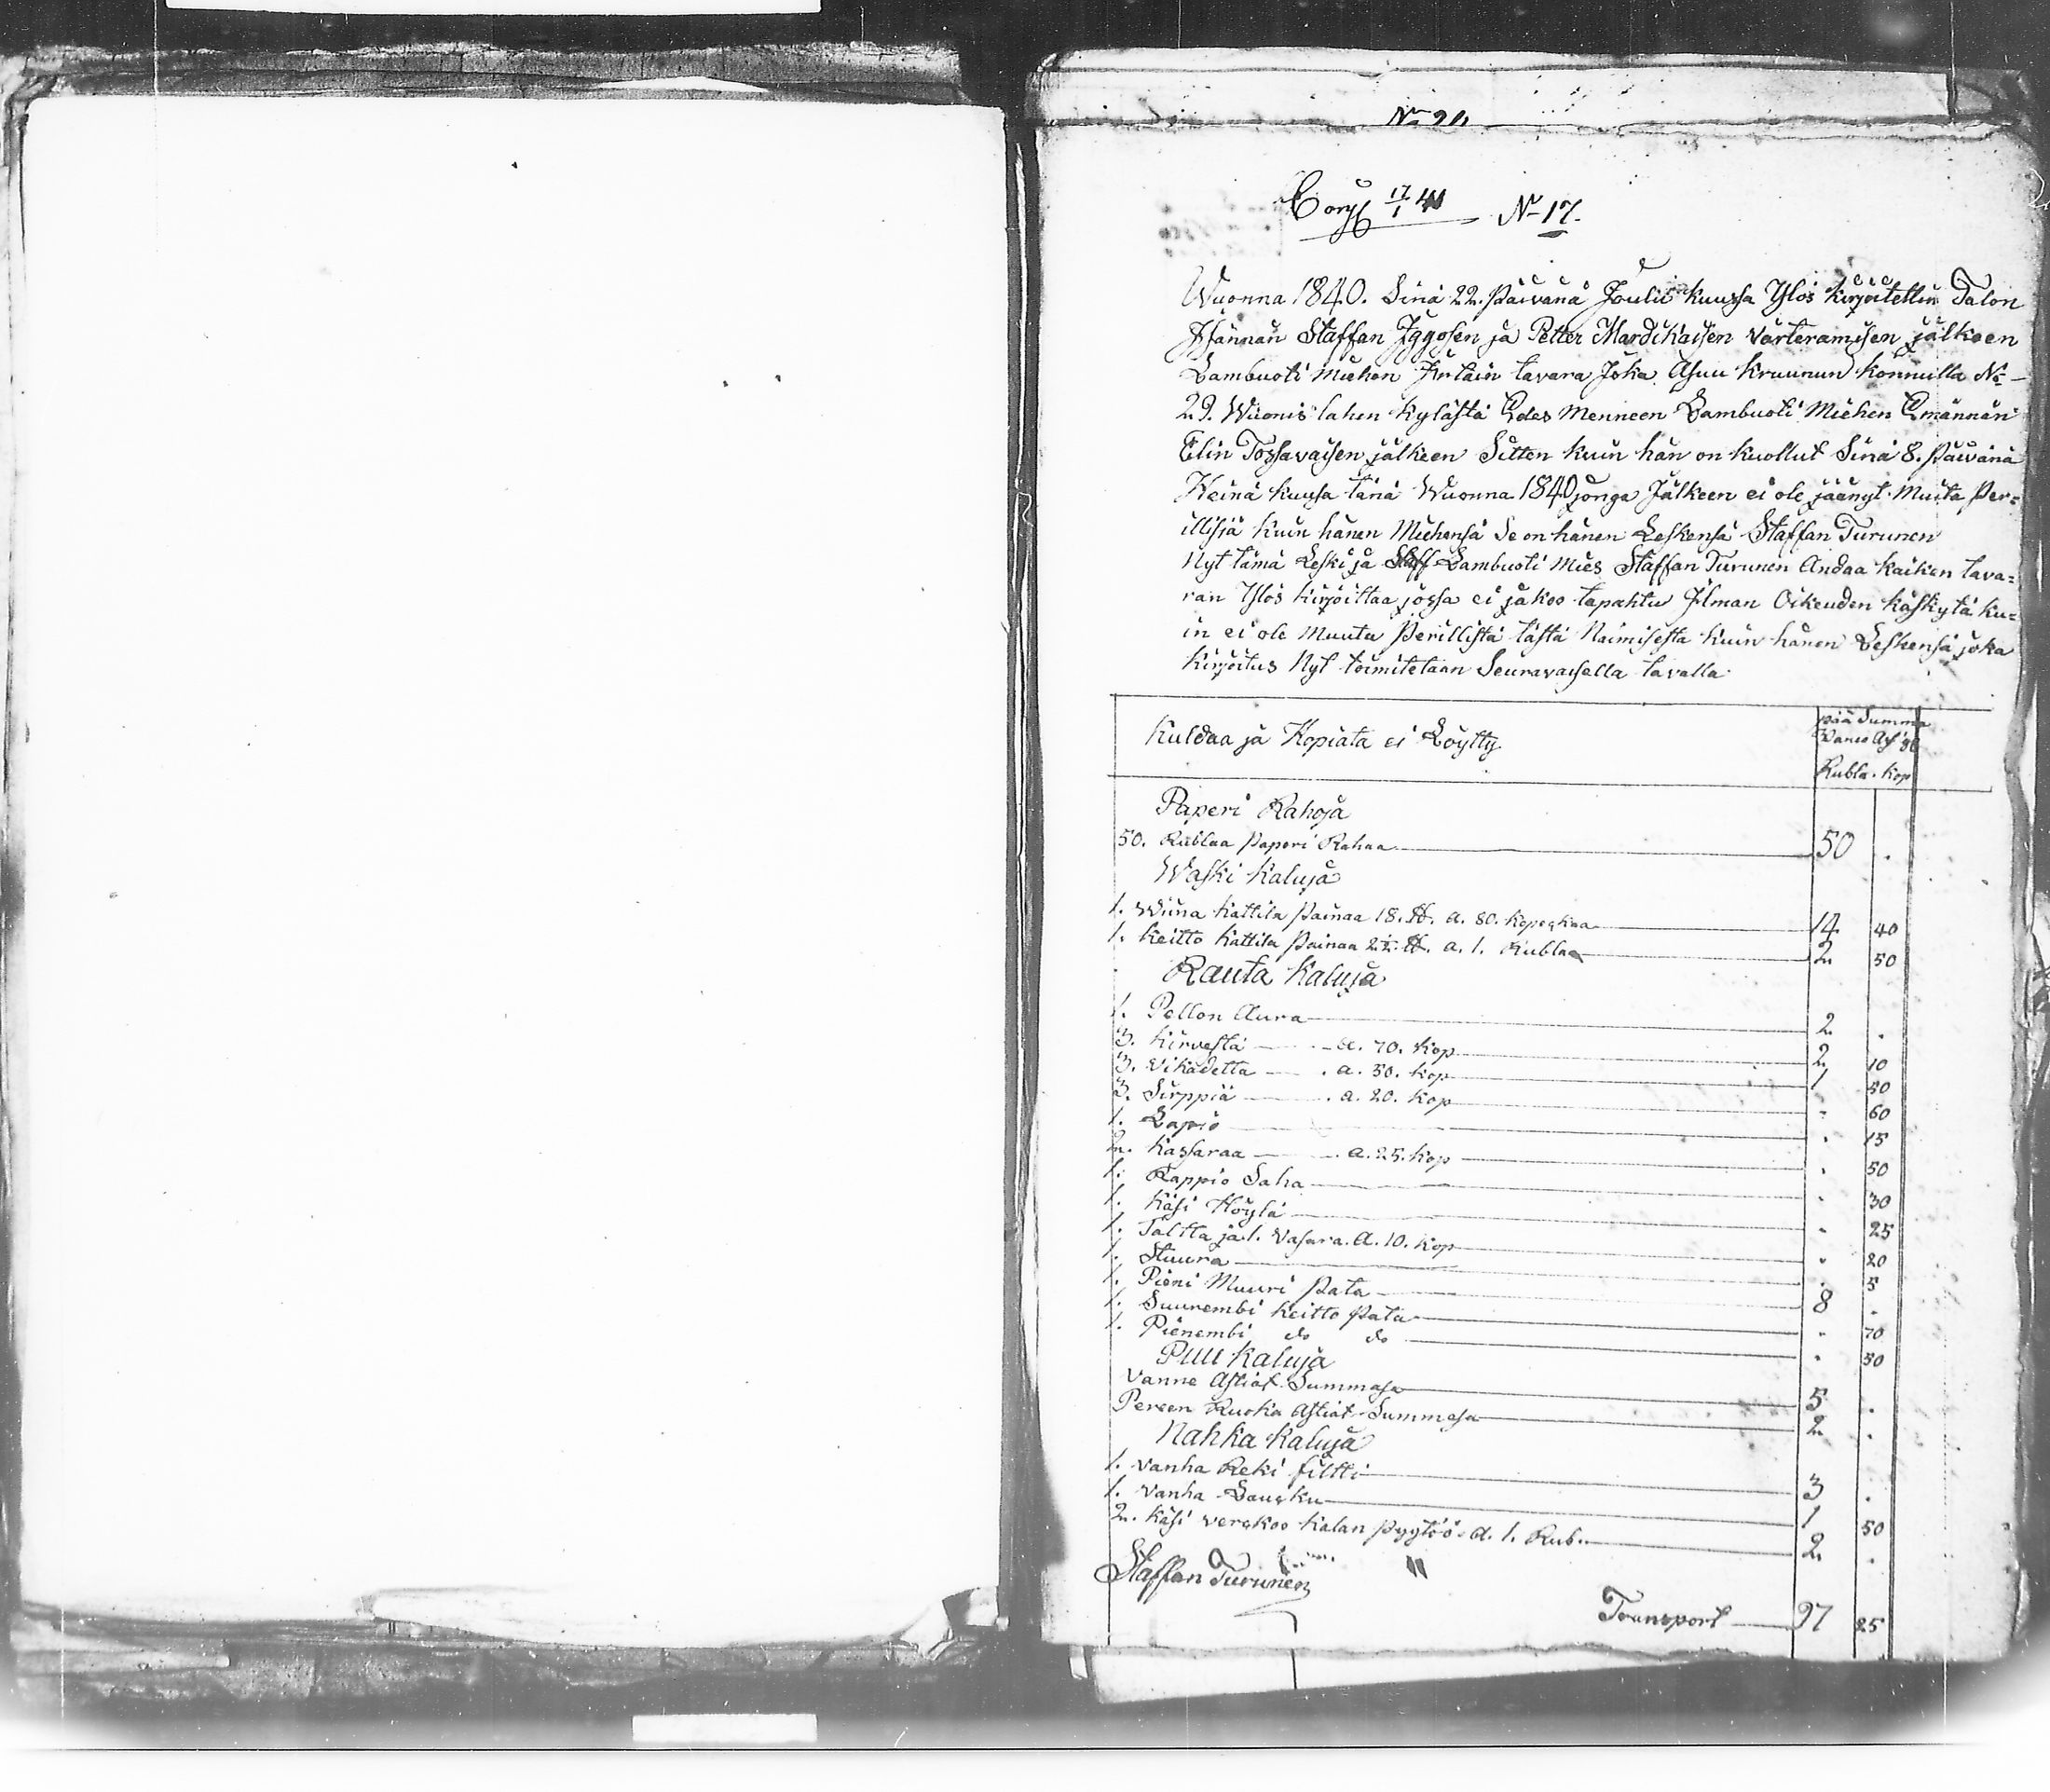 No 20.
17/1 41 No 17.
Wuonna 1840. Sinä 22. päivänä Joulu kuussa Ylös kirjoitettin Talon
Isännän Staffan Iggosen ja Petter Mardikaisen värteramisen jälkeen
Lambuoti miehen Irtain tavara Joka Asuu kruunun konnulla No
29. Wuonis lahen kylästä Edes menneen Lambuoti Miehen Emännän
Elin Tossavaisen jälkeen Sitten kuin hän on kuollut Sinä 8. päivänä
Heinä kuusa tänä Wuonna 1840 jonga Jälkeen ei ole jäänyt Muita Per=
illisiä kuin hänen Miehensä Se on hänen Leskensä Staffan Turunen
Nyt tämä Leski ja Lambuoti mies Staffan Turunen Andaa kaiken tava=
ran Ylös kirjoittaa jossa ei jakoo tapahtu Ilman Oikeuden käskytä ku=
in ei ole Muuta Perillistä tästä Naimisesta kuin hänen Leskensä joka
kirjoitus Nyt toimitetaan Seuravaisella tavalla
Kuldaa ja Hopiata ei Löytty
pää Summa
Banco
Rubla. kop
Paperi Rahoja
50. Rublaa Paperi Rahaa 50 .
Waski kaluja
1. Wiina kattila painaa 18. ℔. a. 80. kopeekaa 14 40
1. keitto kattila painaa 2½ ℔. a. 1. Rublaa 2 50
Rauta kaluja
1. Pellon Aura 2 .
3. kirvestä a. 70. kop 2 10
3. vikadetta a. 50. kop 1 50
3. Sirppiä a. 20. kop . 60
1. Lapio . 15
2. kassaraa a. 25. kop . 50
1. Rappio Saha . 30
1. käsi Höylä . 25
1. Taltta ja 1. Vasara. a. 10. kop . 20
1. Stuura . 5
1. Pieni Muuri pata 8 .
1. Suurembi keitto pata . 70
1. Pienembi do do . 50
Puu kaluja
Vanne Astiat Summasa 5 .
Pereen Ruoka Astiat Summasa 2 .
Nahka kaluja
1. vanha Reki filtti 3 .
1. vanha 1 50
2. käsi verekoo kalan pyytöö a. 1. Rub. 2 .
Staffan Turunen
Transport 97 25